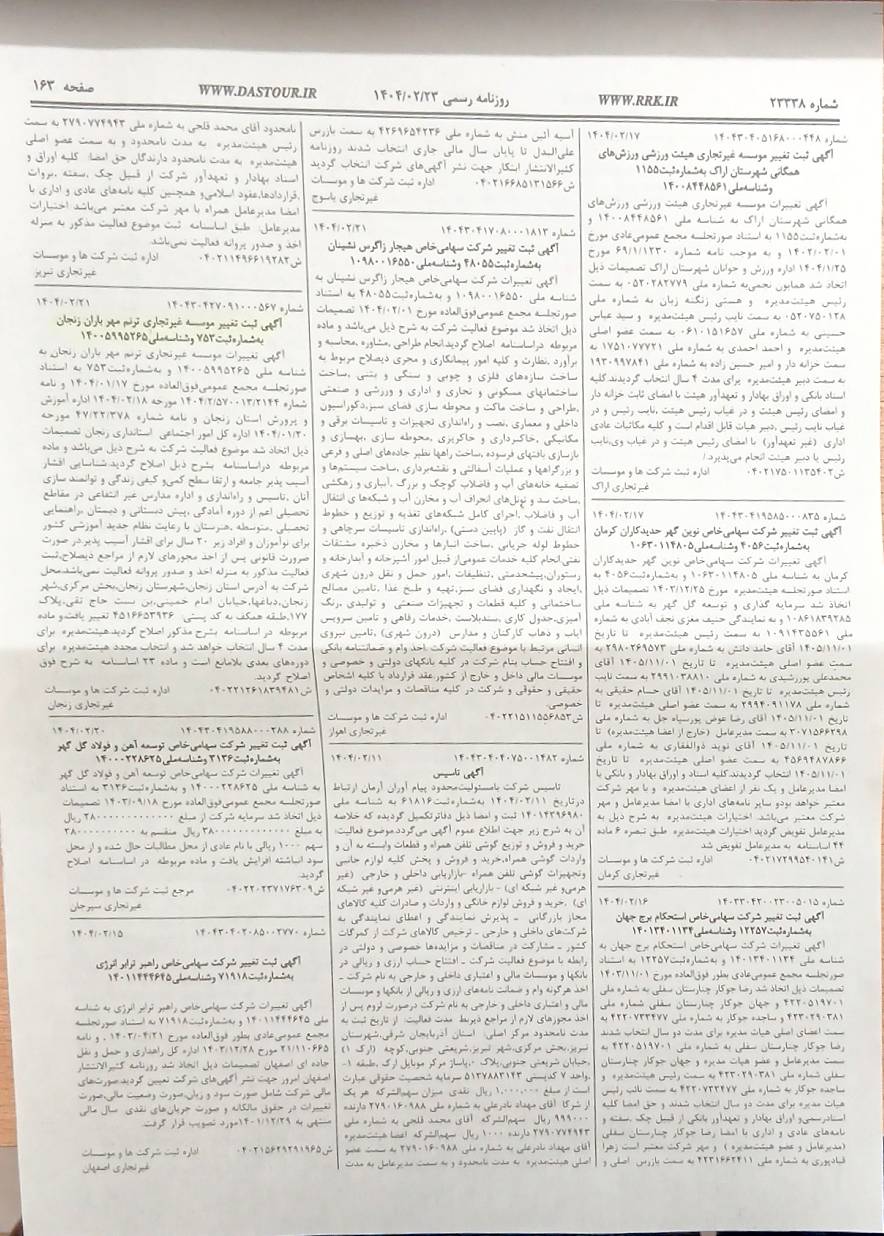 شماره ۲۳۳۳۸
WWW.RRK.IR
روزنامه رسمی ۱۴۰۴/۰۲/۲۳
WWW.DASTOUR.IR
صفحه ۱۶۳
شماره ۱۴۰۴۳۰۴۰۵۱۶۸۰۰۰۴۴۸
۱۴۰۴/۰۲/۱۷
آگهی ثبت تغییر موسسه غیرتجاری هیئت ورزشی ورزش‌های
همگانی شهرستان اراک به‌شماره‌ثبت۱۱۵۵
وشناسه‌ملی۱۴۰۰۸۴۴۸۵۶۱
آگهی تغییرات موسسه غیرتجاری هیئت ورزشی ورزش‌های
همگانی شهرستان اراک به شناسه ملی ۱۴۰۰۸۴۴۸۵۶۱ و
به‌شماره‌ثبت۱۱۵۵ به استناد صورتجلسه مجمع عمومی‌عادی مورخ
۱۴۰۲/۰۲/۰۱ و به موجب نامه شماره ۶۹/۱/۱۲۳۰ مورخ
۱۴۰۴/۱/۲۵ اداره ورزش و جوانان شهرستان اراک تصمیمات ذیل
اتخاذ شد همایون نجمی‌به شماره ملی ۰۵۲۰۲۸۲۷۷۹ به سمت
رئیس هیئت‌مدیره و هستی زنگنه زبان به شماره ملی
۰۵۲۰۷۵۰۱۲۸ به سمت نایب رئیس هیئت‌مدیره و سید عباس
حسینی به شماره ملی ۰۶۱۰۱۵۱۶۵۷ به سمت عضو اصلی
هیئت‌مدیره و احمد احمدی به شماره ملی ۱۷۵۱۰۷۷۷۲۱ به
سمت خزانه دار و امیر حسین زاده به شماره ملی ۱۹۳۰۹۹۷۸۴۱
به سمت دبیر هیئت‌مدیره برای مدت ۴ سال انتخاب گردیدند.کلیه
اسناد بانکی و اوراق بهادار و تعهدآور هیئت با امضای ثابت خزانه دار
و امضای رئیس هیئت و در غیاب رئیس هیئت، نایب رئیس و در
غیاب نایب رئیس، دبیر هیأت قابل اقدام است و کلیه مکاتبات عادی
اداری (غیر تعهدآور) با امضای رئیس هیئت و در غیاب وی،نایب
رئیس یا دبیر هیئت انجام می‌پذیرد./
ش۰۴۰۲۱۷۵۰۱۱۳۵۴۰۲
اداره ثبت شرکت ها و موسسات
غیرتجاری اراک
شماره ۱۴۰۴۳۰۴۱۹۵۸۵۰۰۰۸۳۵
۱۴۰۴/۰۲/۱۷
آگهی ثبت تغییر شرکت سهامی‌خاص نوین گهر حدیدکاران کرمان
به‌شماره‌ثبت۴۰۵۶ وشناسه‌ملی۱۰۶۳۰۱۱۴۸۰۵
آگهی تغییرات شرکت سهامی‌خاص نوین گهر حدیدکاران
کرمان به شناسه ملی ۱۰۶۳۰۱۱۴۸۰۵ و به‌شماره‌ثبت۴۰۵۶ به
استناد صورتجلسه هیئت‌مدیره مورخ ۱۴۰۳/۱۲/۲۵ تصمیمات ذیل
اتخاذ شد سرمایه گذاری و توسعه گل گهر به شناسه ملی
۱۰۸۶۱۸۳۹۲۸۵ و به نمایندگی حنیف مغزی نجف آبادی به شماره
ملی ۱۰۹۱۴۳۵۵۶۱ به سمت رئیس هیئت‌مدیره تا تاریخ
۱۴۰۵/۱۱/۰۱ آقای حامد دانش به شماره ملی ۲۹۸۰۲۶۹۵۷۳ به
سمت عضو اصلی هیئت‌مدیره تا تاریخ ۱۴۰۵/۱۱/۰۱ آقای
محمدعلی پوررشیدی به شماره ملی ۲۹۹۱۰۳۸۸۱۰ به سمت نایب
رئیس هیئت‌مدیره تا تاریخ ۱۴۰۵/۱۱/۰۱ آقای حسام حقیقی به
شماره ملی ۲۹۹۴۰۹۱۱۷۸ به سمت عضو اصلی هیئت‌مدیره تا
تاریخ ۱۴۰۵/۱۱/۰۱ آقای رضا عوض پورسیاه جل به شماره ملی
۳۰۷۱۵۶۶۲۹۸ به سمت مدیرعامل (خارج از اعضا هیئت‌مدیره) تا
تاریخ ۱۴۰۵/۱۱/۰۱ آقای نوید ذوالفقاری به شماره ملی
۴۵۶۹۴۸۷۸۶۶ به سمت عضو اصلی هیئت‌مدیره تا تاریخ
۱۴۰۵/۱۱/۰۱ انتخاب گردیدند.کلیه اسناد و اوراق بهادار و بانکی با
امضا مدیرعامل و یک نفر از اعضای هیئت‌مدیره و با مهر شرکت
معتبر خواهد بودو سایر نامه‌های اداری با امضا مدیرعامل و مهر
شرکت معتبر می‌باشد. اختیارات هیئت‌مدیره به شرح ذیل به
مدیرعامل تفویض گردید اختیارات هیئت‌مدیره طبق تبصره ۶ ماده
۴۴ اساسنامه به مدیرعامل تفویض شد
ش۰۴۰۲۱۷۲۹۹۵۴۰۱۴۱
اداره ثبت شرکت ها و موسسات
غیرتجاری کرمان
شماره ۱۴۰۳۳۰۴۲۰۰۲۳۰۰۵۰۱۵
۱۴۰۴/۰۲/۱۶
آگهی ثبت تغییر شرکت سهامی‌خاص استحکام برج جهان
به‌شماره‌ثبت۱۲۲۵۷ وشناسه‌ملی۱۴۰۱۳۴۰۱۱۳۴
آگهی تغییرات شرکت سهامی‌خاص استحکام برج جهان به
شناسه ملی ۱۴۰۱۳۴۰۱۱۳۴ و به‌شماره‌ثبت۱۲۲۵۷ به استناد
صورتجلسه مجمع عمومی‌عادی بطور فوق‌العاده مورخ ۱۴۰۳/۱۱/۰۱
تصمیمات ذیل اتخاذ شد رضا جوکار چنارستان سفلی به شماره
ملی ۴۲۲۰۵۱۹۷۰۱ و جهان جوکار چنارستان سفلی به شماره ملی
۴۲۳۰۲۹۰۳۸۱ و ساجده جوکار به شماره ملی ۴۲۲۰۷۳۳۴۷۷ به
سمت اعضای اصلی هیات مدیره برای مدت دو سال انتخاب شدند
رضا جوکار چنارستان سفلی به شماره ملی ۴۲۲۰۵۱۹۷۰۱ به
سمت مدیرعامل و عضو هیات مدیره و جهان جوکار چنارستان
سفلی به شماره ملی ۴۲۳۰۲۹۰۳۸۱ به سمت رئیس هیئت‌مدیره و
ساجده جوکار به شماره ملی ۴۲۲۰۷۳۳۴۷۷ به سمت نائب رئیس
هیات مدیره برای مدت دو سال انتخاب شدند و حق امضا کلیه
اسنادرسمی‌و اوراق بهادار و تعهدآور بانکی از قبیل چک ،سفته و
نامه‌های عادی و اداری با امضا رضا جوکار چنارستان سفلی
(مدیرعامل و عضو هیئت‌مدیره ) و مهر شرکت معتبر است زهرا
قبادپوری به شماره ملی ۴۲۳۱۶۶۲۴۱۱ به سمت بازرس اصلی و
آسیه آئین منش به شماره ملی ۴۲۶۹۶۵۴۲۳۶ به سمت بازرس
علی‌البدل تا پایان سال مالی جاری انتخاب شدند روزنامه
کثیرالانتشار ابتکار جهت نشر آگهی‌های شرکت انتخاب گردید
ش۰۴۰۲۱۶۶۸۵۱۳۱۵۶۶
اداره ثبت شرکت ها و موسسات
غیرتجاری یاسوج
شماره ۱۴۰۴۳۰۴۱۷۰۸۰۰۰۱۸۱۳
۱۴۰۴/۰۲/۲۱
آگهی ثبت تغییر شرکت سهامی‌خاص هیجار زاگرس نشینان
به‌شماره‌ثبت۴۸۰۵۵ وشناسه‌ملی۱۰۹۸۰۰۱۶۵۵۰
آگهی تغییرات شرکت سهامی‌خاص هیجار زاگرس نشینان به
شناسه ملی ۱۰۹۸۰۰۱۶۵۵۰ و به‌شماره‌ثبت۴۸۰۵۵ به استناد
صورتجلسه مجمع عمومی‌فوق‌العاده مورخ ۱۴۰۴/۰۲/۰۱ تصمیمات
ذیل اتخاذ شد موضوع فعالیت شرکت به شرح ذیل می‌باشد و ماده
مربوطه دراساسنامه اصلاح گردید:انجام طراحی، مشاوره، محاسبه و
برآورد ،نظارت و کلیه امور پیمانکاری و مجری ذیصلاح مربوط به
ساخت سازه‌های فلزی و چوبی و سنگی و بتنی، ساخت
ساختمانهای مسکونی و تجاری و اداری و ورزشی و صنعتی
،طراحی و ساخت ماکت و محوطه سازی فضای سبز،دکوراسیون
داخلی و معماری، نصب و راه‌اندازی تجهیزات و تاسیسات برقی و
مکانیکی، خاکبرداری و خاکریزی، محوطه سازی، بهسازی و
بازسازی بافتهای فرسوده، ساخت راهها نظیر جاده‌های اصلی و فرعی
و بزرگراهها و عملیات آسفالتی و نقشه‌برداری، ساخت سیستم‌ها و
تصفیه خانه‌های آب و فاضلاب کوچک و بزرگ، آبیاری و زهکشی
،ساخت سد و تونل‌های انحراف آب و مخازن آب و شبکه‌ها ی انتقال
آب و فاضلاب ،اجرای کامل شبکه‌های تغذیه و توزیع و خطوط
انتقال نفت و گاز (پایین دستی) ،راه‌اندازی تاسیسات سرچاهی و
خطوط لوله جریانی، ساخت انبارها و مخازن ذخیره مشتقات
نفتی،انجام کلیه خدمات عمومی‌از قبیل امور آشپزخانه و آبدارخانه و
رستوران،پیشخدمتی، تنظیفات ،امور حمل و نقل درون شهری
،ایجاد و نگهداری فضای سبز،تهیه و طبخ غذا ،تامین مصالح
ساختمانی و کلیه قطعات و تجهیزات صنعتی و تولیدی، رنگ
آمیزی، جدول کاری، سندبلاست، خدمات رفاهی و تامین سرویس
ایاب و ذهاب کارکنان و مدارس (درون شهری)، تامین نیروی
انسانی مرتبط با موضوع فعالیت شرکت. اخذ وام و ضمانتنامه بانکی
و افتتاح حساب بنام شرکت در کلیه بانکهای دولتی و خصوصی و
موسسات مالی داخل و خارج از کشور.عقد قرارداد با کلیه اشخاص
حقیقی و حقوقی و شرکت در کلیه مناقصات و مزایدات دولتی و
خصوصی.
ش۰۴۰۲۲۱۵۱۱۵۵۶۸۵۳
اداره ثبت شرکت ها و موسسات
غیرتجاری اهواز
شماره ۱۴۰۴۳۰۴۰۴۰۷۵۰۰۱۴۸۲
۱۴۰۴/۰۲/۱۱
آگهی تاسیس
تاسیس شرکت بامسئولیت‌محدود پیام آوران آرمان ارتباط
درتاریخ ۱۴۰۴/۰۲/۱۱ به‌شماره‌ثبت ۶۱۸۱۶ به شناسه ملی
۱۴۰۱۴۳۹۶۹۸۰ ثبت و امضا ذیل دفاترتکمیل گردیده که خلاصه
آن به شرح زیر جهت اطلاع عموم آگهی می‌گردد.موضوع فعالیت:
خرید و فروش و توزیع گوشی تلفن همراه و قطعات وابسته به آن و
واردات گوشی همراه،خرید و فروش و پخش کلیه لوازم جانبی
وتجهیزات گوشی تلفن همراه -بازاریابی داخلی و خارجی (غیر
هرمی‌و غیر شبکه ای) - بازاریابی اینترنتی (غیر هرمی‌و غیر شبکه
ای) ،خرید و فروش لوازم خانگی و واردات و صادرات کلیه کالاهای
مجاز بازرگانی - پذیرش نمایندگی و اعطای نمایندگی به
شرکت‌های داخلی و خارجی - ترخیص کالاهای شرکت از گمرکات
کشور - مشارکت در مناقصات و مزایده‌ها خصوصی و دولتی در
رابطه با موضوع فعالیت شرکت - افتتاح حساب ارزی و ریالی در
بانکها و موسسات مالی و اعتباری داخلی و خارجی به نام شرکت -
اخذ هرگونه وام و ضمانت نامه‌های ارزی و ریالی از بانکها و موسسات
مالی و اعتباری داخلی و خارجی به نام شرکت درصورت لزوم پس از
اخذ مجوزهای لازم از مراجع ذیربط مدت فعالیت: از تاریخ ثبت به
مدت نامحدود مرکز اصلی: استان آذربایجان شرقی،شهرستان
تبریز،بخش مرکزی،شهر تبریز،شریعتی جنوبی،کوچه (ارک ۱)
،خیابان شریعتی جنوبی،پلاک ۰،پاساژ مرکز موبایل ارک، طبقه ۱-
،واحد ۷ کدپستی ۵۱۳۷۸۸۳۱۴۳ سرمایه شخصیت حقوقی عبارت
است از مبلغ ۱,۰۰۰,۰۰۰ ریال نقدی میزان سهم‌الشرکه هر یک
از شرکا آقای مهداد نادرعلی به شماره ملی ۲۷۹۰۱۶۰۹۸۸ دارنده
۹۹۹۰۰۰ ریال سهم‌الشرکه آقای محمد فلجی به شماره ملی
۲۷۹۰۷۷۴۹۴۳ دارنده ۱۰۰۰ ریال سهم‌الشرکه اعضا هیئت‌مدیره
آقای مهداد نادرعلی به شماره ملی ۲۷۹۰۱۶۰۹۸۸ به سمت عضو
اصلی هیئت‌مدیره به مدت نامحدود و به سمت مدیرعامل به مدت
نامحدود آقای محمد فلجی به شماره ملی ۲۷۹۰۷۷۴۹۴۳ به سمت
رئیس هیئت‌مدیره به مدت نامحدود و به سمت عضو اصلی
هیئت‌مدیره به مدت نامحدود دارندگان حق امضا: کلیه اوراق و
اسناد بهادار و تعهدآور شرکت از قبیل چک ،سفته ،بروات
،قراردادها،عقود اسلامی‌و همچنین کلیه نامه‌های عادی و اداری با
امضا مدیرعامل همراه با مهر شرکت معتبر می‌باشد اختیارات
مدیرعامل: طبق اساسنامه ثبت موضوع فعالیت مذکور به منزله
اخذ و صدور پروانه فعالیت نمی‌باشد.
ش۰۴۰۲۱۱۴۹۶۶۱۹۲۸۲
اداره ثبت شرکت ها و موسسات
غیرتجاری تبریز
شماره ۱۴۰۴۳۰۴۲۷۰۹۱۰۰۰۵۶۷
۱۴۰۴/۰۲/۲۱
آگهی ثبت تغییر موسسه غیرتجاری ترنم مهر باران زنجان
به‌شماره‌ثبت۷۵۳ وشناسه‌ملی۱۴۰۰۵۹۹۵۲۶۵
آگهی تغییرات موسسه غیرتجاری ترنم مهر باران زنجان به
شناسه ملی ۱۴۰۰۵۹۹۵۲۶۵ و به‌شماره‌ثبت۷۵۳ به استناد
صورتجلسه مجمع عمومی‌فوق‌العاده مورخ ۱۴۰۴/۰۱/۱۷ و نامه
شماره ۱۴۰۴/۲/۵۷۰۰۱۳/۲۱۴۴ مورخه ۱۴۰۴/۰۲/۱۸ اداره آموزش
و پرورش استان زنجان و نامه شماره ۴۷/۲۲/۳۷۸ مورخه
۱۴۰۴/۰۱/۲۰ اداره کل امور اجتماعی استانداری زنجان تصمیمات
ذیل اتخاذ شد موضوع فعالیت شرکت به شرح ذیل می‌باشد و ماده
مربوطه دراساسنامه بشرح ذیل اصلاح گردید:شناسایی اقشار
آسیب پذیر جامعه و ارتقا سطح کمی‌و کیفی زندگی و توانمند سازی
آنان ،تاسیس و راه‌اندازی و اداره مدارس غیر انتفاعی در مقاطع
تحصیلی اعم از دوره آمادگی، پیش دبستانی و دبستان ،راهنمایی
تحصیلی ،متوسطه ،هنرستان با رعایت نظام جدید آموزشی کشور
برای نوآموزان و افراد زیر ۲۰ سال برای اقشار آسیب پذیر،در صورت
ضرورت قانونی پس از اخذ مجوزهای لازم از مراجع ذیصلاح،ثبت
فعالیت مذکور به منزله اخذ و صدور پروانه فعالیت نمی‌باشد.محل
شرکت به آدرس استان زنجان،شهرستان زنجان،بخش مرکزی،شهر
زنجان،دباغها،خیابان امام خمینی،بن بست حاج تقی،پلاک
۱۷۷،طبقه همکف به کد پستی ۴۵۱۶۶۵۳۹۳۶ تغییر یافت،و ماده
مربوطه در اساسنامه بشرح مذکور اصلاح گردید.هیئت‌مدیره برای
مدت ۴ سال انتخاب خواهد شد و انتخاب مجدد هیئت‌مدیره برای
دوره‌های بعدی بلامانع است و ماده ۲۳ اساسنامه به شرح فوق
اصلاح گردید.
ش۰۴۰۲۲۱۲۶۱۸۳۹۴۸۱
اداره ثبت شرکت ها و موسسات
غیرتجاری زنجان
شماره ۱۴۰۴۳۰۴۱۹۵۸۸۰۰۰۲۸۸
۱۴۰۴/۰۲/۲۰
آگهی ثبت تغییر شرکت سهامی‌خاص توسعه آهن و فولاد گل گهر
به‌شماره‌ثبت۳۱۳۶ وشناسه‌ملی۱۴۰۰۰۲۲۸۶۲۵
آگهی تغییرات شرکت سهامی‌خاص توسعه آهن و فولاد گل گهر
به شناسه ملی ۱۴۰۰۰۲۲۸۶۲۵ و به‌شماره‌ثبت۳۱۳۶ به استناد
صورتجلسه مجمع عمومی‌فوق‌العاده مورخ ۱۴۰۳/۰۹/۱۸ تصمیمات
ذیل اتخاذ شد سرمایه شرکت از مبلغ
به مبلغ
سهم ۱۰۰۰ ریالی با نام عادی از محل مطالبات حال شده و از محل
سود انباشته افزایش یافت و ماده مربوطه در اساسنامه اصلاح
گردید.
ش۰۴۰۲۲۰۲۳۷۱۷۶۳۰۹
مرجع ثبت شرکت ها و موسسات
غیرتجاری سیرجان
شماره ۱۴۰۴۳۰۴۰۲۰۸۵۰۰۲۷۷۰
۱۴۰۴/۰۲/۱۵
آگهی ثبت تغییر شرکت سهامی‌خاص راهبر ترابر انرژی
به‌شماره‌ثبت۷۱۹۱۸ وشناسه‌ملی۱۴۰۱۱۴۴۴۶۴۵
آگهی تغییرات شرکت سهامی‌خاص راهبر ترابر انرژی به شناسه
ملی ۱۴۰۱۱۴۴۴۶۴۵ و به‌شماره‌ثبت۷۱۹۱۸ به استناد صورتجلسه
مجمع عمومی‌عادی بطور فوق‌العاده مورخ ۱۴۰۳/۰۴/۲۱ ، و نامه
۲۱/۱۱۰۶۶۵ مورخ ۱۴۰۳/۱۲/۲۸ اداره کل راهداری و حمل و نقل
جاده ای اصفهان تصمیمات ذیل اتخاذ شد روزنامه کثیرالانتشار
اصفهان امروز جهت نشر آگهی‌های شرکت تعیین گردید.صورت‌های
مالی شرکت شامل صورت سود و زیان،صورت وضعیت مالی،صورت
تغییرات در حقوق مالکانه و صورت جریان‌های نقدی سال مالی
منتهی به ۱۴۰۱/۱۲/۲۹مورد تصویب قرار گرفت.
ش۰۴۰۲۱۵۶۲۹۲۹۱۹۶۵
اداره ثبت شرکت ها و موسسات
غیرتجاری اصفهان